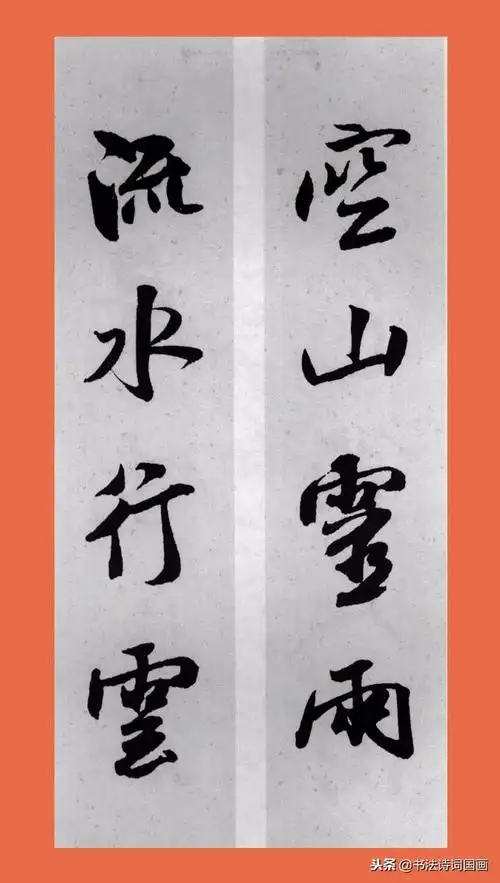 空山靈雨
流水行雲
头条 @书法诗词国画